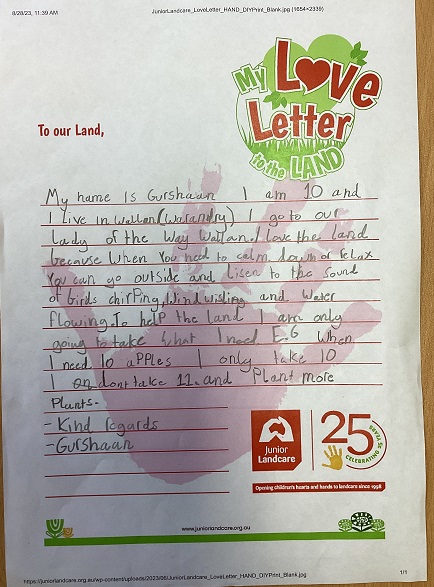 8/28/23, 11:39 AM
JuniorLandcare_LoveLetter_HAND_DIYPrint_Blank.jpg (1654×2339)
My Love
Letter
to the LAND
To our Land,
My name is Gurshaan I am 10 and
I live in Wallan (Warandry) I go to our
Lady of the Way Wallan. I love the land
because when you need to calm down or relax
You can go outside and Lisen to the sound
of birds chirping, wind wisling and water
flowing. To help the land I am only
going to take what I need E.G when
I need 10 apples I only take 10
I dont take 11. and Plant more
Plants.
- Kind regards
- Gurshaan
Junior
Landcare
25
CELEBRATING 25 YEARS
Opening children's hearts and hands to landcare since 1998
www.juniorlandcare.org.au
https://juniorlandcare.org.au/wp-content/uploads/2023/06/JuniorLandcare_LoveLetter_HAND_DIYPrint_Blank.jpg
1/1